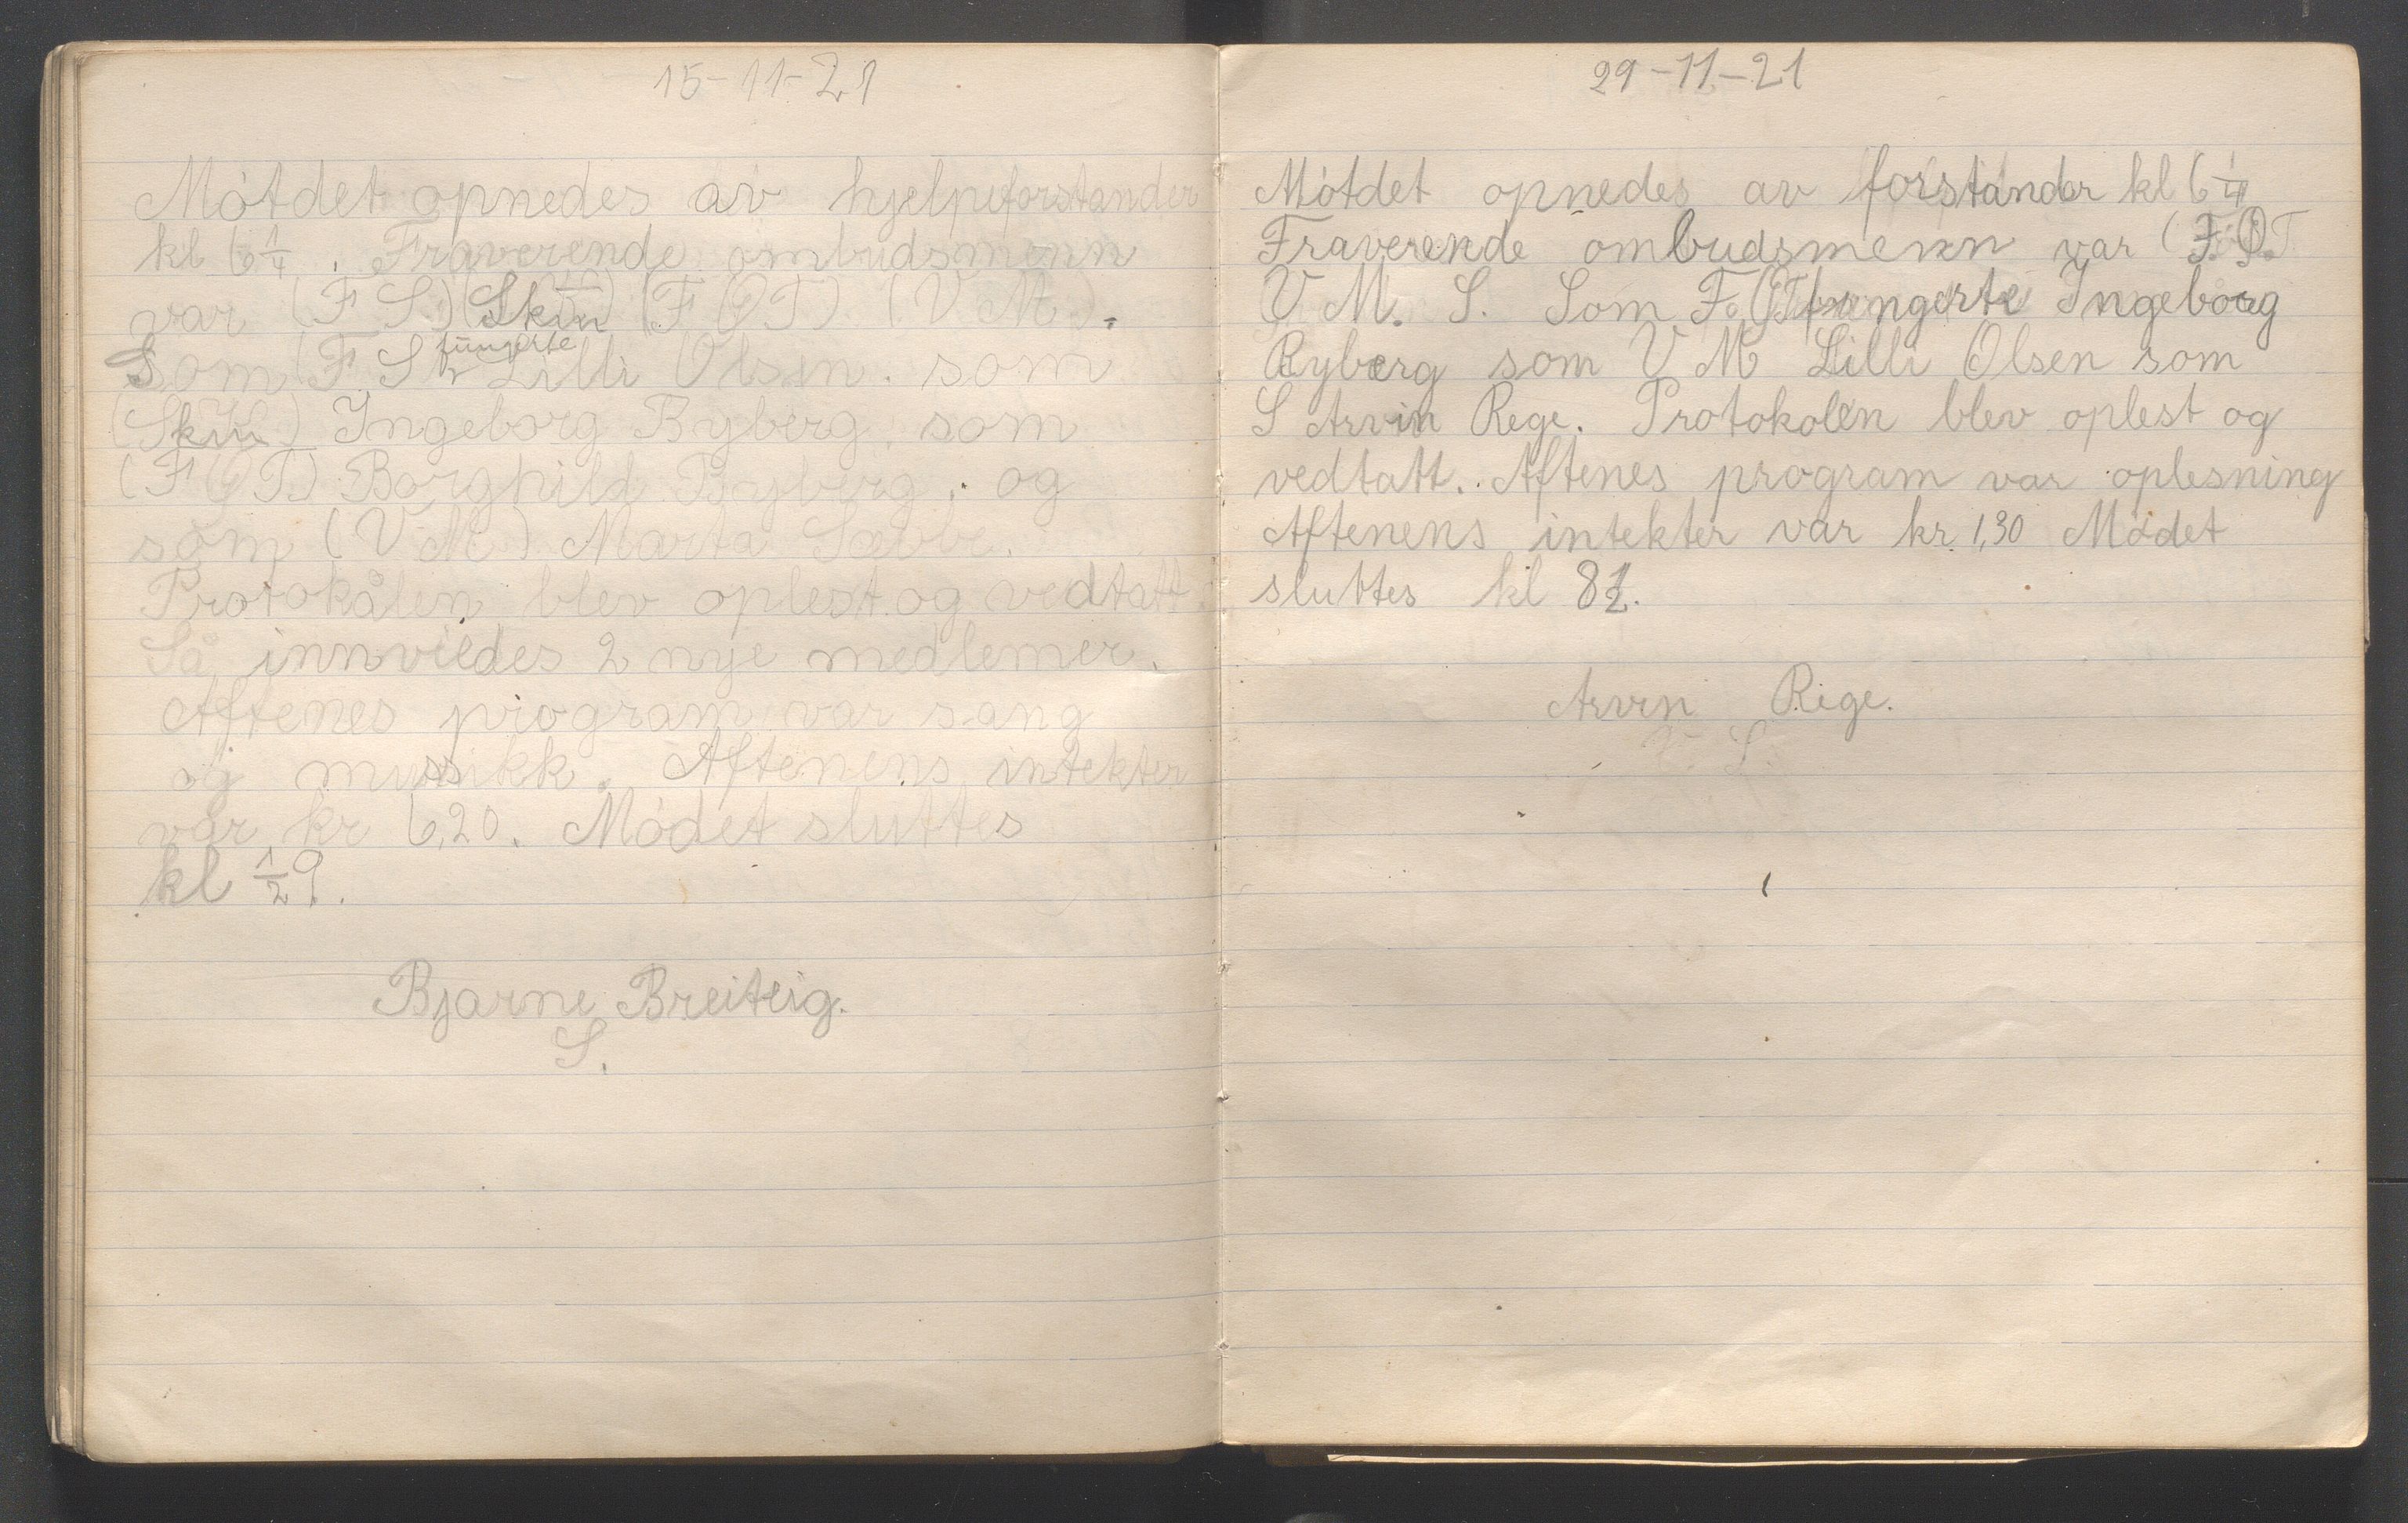 15-11-21
Mötdet opnedes av hjelpeforstander
kl 6 1/4. Fraverende ombudsmenn
var (F S) (Skin) (F O T) (V M).
fungerte
Som (F S Lilli Olsen. som
(Skin) Ingeborg Byberg. som
(F O T) Borghild Byberg. og
som (V M) Marta Sæbbe.
Protokålen blev oplest og vedtatt
Så innvieldes 2 nye medlemer.
Aftenes program var sang
og mussikk. Aftenens intekter
var kr 6,20. Mödet sluttes
kl 1/2 9.
Bjarne Breiteig.
S.
29-11-21
Mötdet opnedes av forstander kl 6 1/4
Fraverende ombudsmenn var (F.O.T
V M. S. Som F.O.T fungerte Ingeborg
Ryberg som V M Lilli Olsen som
S Arvin Rege. Protokolen blev oplest og
vedtatt. Aftenes program var oplesning
Aftenens intekter var kr 1,30 Mödet
sluttes kl 8 1/2.
Arvin Rige.
V. S.